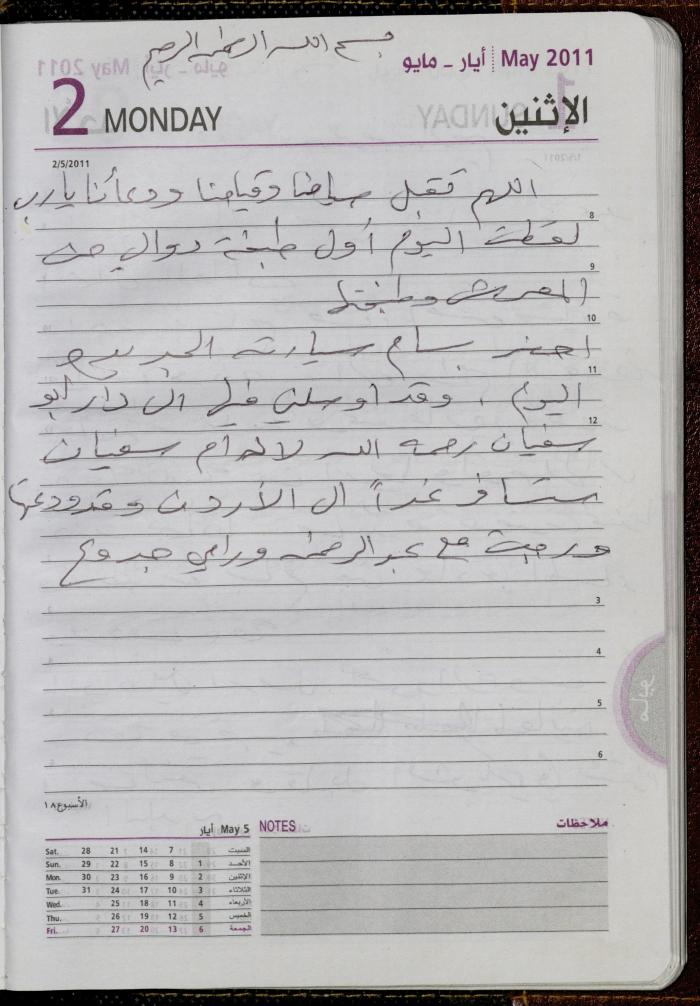 بسم الله الرحمن الرحيم
أيار ـ مايو May 2011
2 MONDAY الإثنين
2/5/2011
اللهم تقبل صيامنا وقيامنا ودعائنا يارب
8
لقطت اليوم أول طبخة دوالي من
9
المعرش وطبختها
10
احضر بسام سيارته الجديدة
11
اليوم . وقد اوصلني فيها الى دار ابو
12
سفيان رحمه الله لانه ام سفيان
ستسافر غداً الى الأردن وقد ودعتها
ورجعت مع عبدالرحمن ورامي
3
4
5
6
الأسبوع ١٨
أيار May 5
Sat. 28 21 14 7 السبت
Sun. 29 22 15 8 1 الأحد
Mon. 30 23 16 9 2 الإثنين
Tue. 31 24 17 10 3 الثلاثاء
Wed. 25 18 11 4 الأربعاء
Thu. 26 19 12 5 الخميس
Fri. 27 20 13 6 الجمعة
NOTES ملاحظات